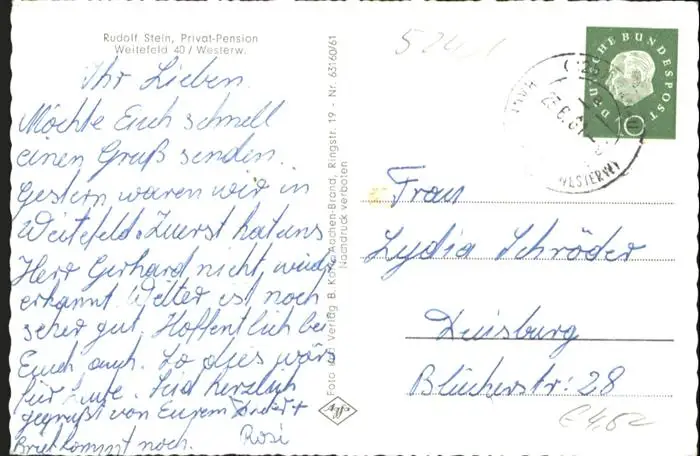 Rudolf Stein, Privat-Pension
Weitefeld 40 / Westerw.
Ihr Lieben.
Möchte Euch schnell
einen Gruß senden.
Gestern waren wir in
Weitefeld. Zuerst hat uns
Herr Gerhard nicht, wieder
erkannt. Wetter ist noch
seher gut. Hoffentlich bei
Euch auch. So dies wärs
für heute. Seid herzlich
gegrüßt von Eurem Dieter +
Rosi
Brief kommt noch.
Foto und Verlag B. Korr, Aachen-Brand, Ringstr. 19 - Nr. 63160/61
Nachdruck verboten
DEUTSCHE BUNDESPOST
10
WESTERW
Frau
Lydia Schröder
Duisburg
Blücherstr: 28
€ 4,62